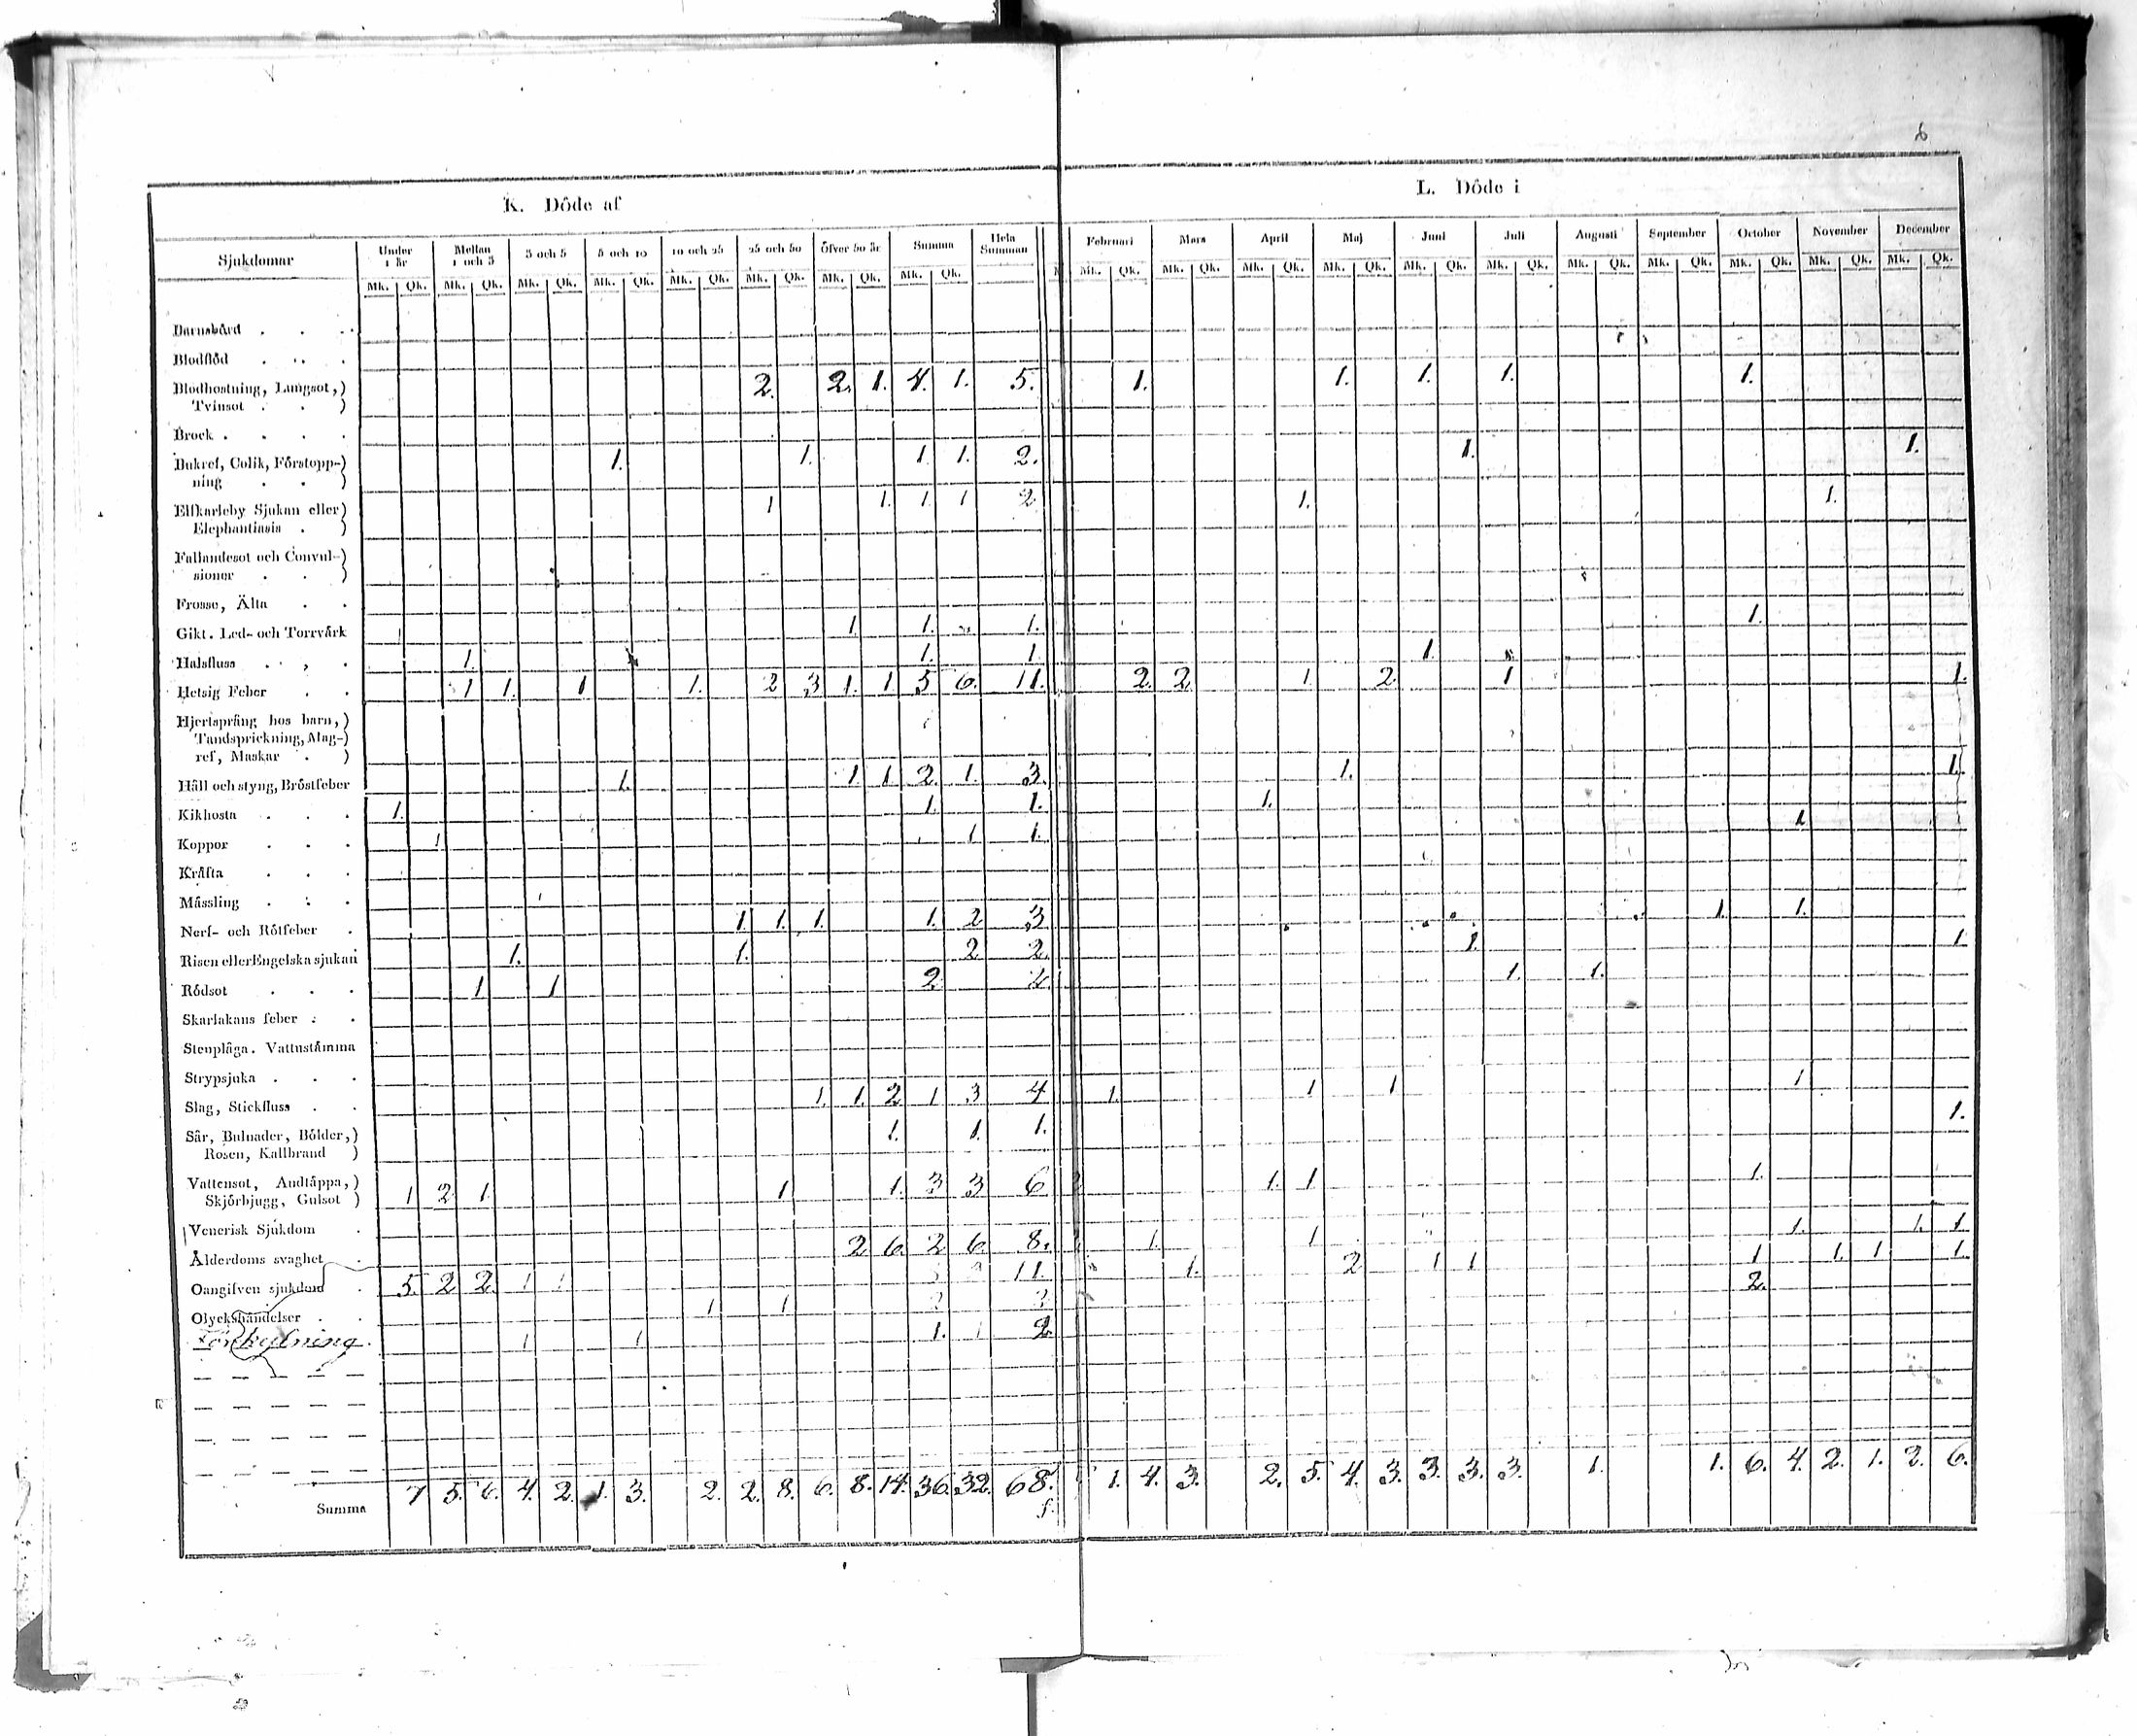 6
K. Döde af
L. Döde i
Sjukdomar Under 1 år Mellan 1 och 3 3 och 5 5 och 10 10 och 25 25 och 50 Öfver 50 år Summa Hela Summan Februari Mars April Maj Juni Juli Augusti September October November December
Mk. Qk. Mk. Qk. Mk. Qk. Mk. Qk. Mk. Qk. Mk. Qk. Mk. Qk. Mk. Qk. Mk. Qk. Mk. Qk. Mk. Qk. Mk. Qk. Mk. Qk. Mk. Qk. Mk. Qk. Mk. Qk. Mk. Qk. Mk. Qk. Mk. Qk.
Barnsbörd . . .
Blodflöd . . .
Blodhostning, Lungsot,) 2. 2. 1. 4. 1. 5. 1. 1. 1. 1. 1.
Tvinsot . . )
Brock . . . .
Bukref, Colik, Förstopp-) 1. 1. 1. 1. 2. 1. 1.
ning . . )
Elfkarleby Sjukan eller) 1 1. 1. 1 2 1. 1.
Elephantiasis . )
Fallandesot och Convul-)
sioner . . )
Frosse, Älta . .
Gikt. Led- och Torrvärk 1. 1. 1. 1.
Halsfluss . , . 1. 1. 1. 1.
Hetsig Feber . . 1 1. 1 1. 2 3 1. 1 5 6. 11. 2. 2 1 2 1 1.
Hjertsprång hos barn,)
Tandsprickning, Mag-)
ref, Maskar . )
Håll och styng, Bröstfeber 1. 1. 1. 2. 1. 3. 1. 1.
Kikhosta . . . 1. 1. 1. 1.
Koppor . . . 1 1 1. 1
Kräfta . . .
Mässling . . .
Nerf- och Rötfeber . 1. 1. 1. 1. 2 3 1. 1.
Risen eller Engelska sjukan 1. 1. 2 2. 1. 1.
Rödsot . . . 1 1 2. 2. 1. 1.
Skarlakans feber . .
Stenplåga. Vattustämma
Strypsjuka . . .
Slag, Stickfluss . . 1. 1. 2 1 3 4 1. 1 1 1
Sår, Bulnader, Bölder,) 1. 1. 1. 1.
Rosen, Kallbrand )
Vattensot, Andtäppa,) 1 2 1. 1 1. 3 3 6 2 1. 1 1.
Skjörbjugg, Gulsot )
Venerisk Sjukdom .
Ålderdoms svaghet . 2 6. 2 6. 8. 1. 1 1. 1. 1
Oangifven sjukdom . 5. 2 2. 1 1 11. 1. 2 1 1 1 1. 1 1.
Olyckshändelser . . 1 1 2 3 2.
Förkylning. 1 1 1. 1 2.
Summa 7 5. 6. 4. 2. 1. 3. 2. 2. 8. 6. 8. 14. 36. 32. 68. 1. 4. 3. 2. 5. 4. 3. 3. 3. 3. 1. 1. 6. 4. 2. 1. 2. 6.